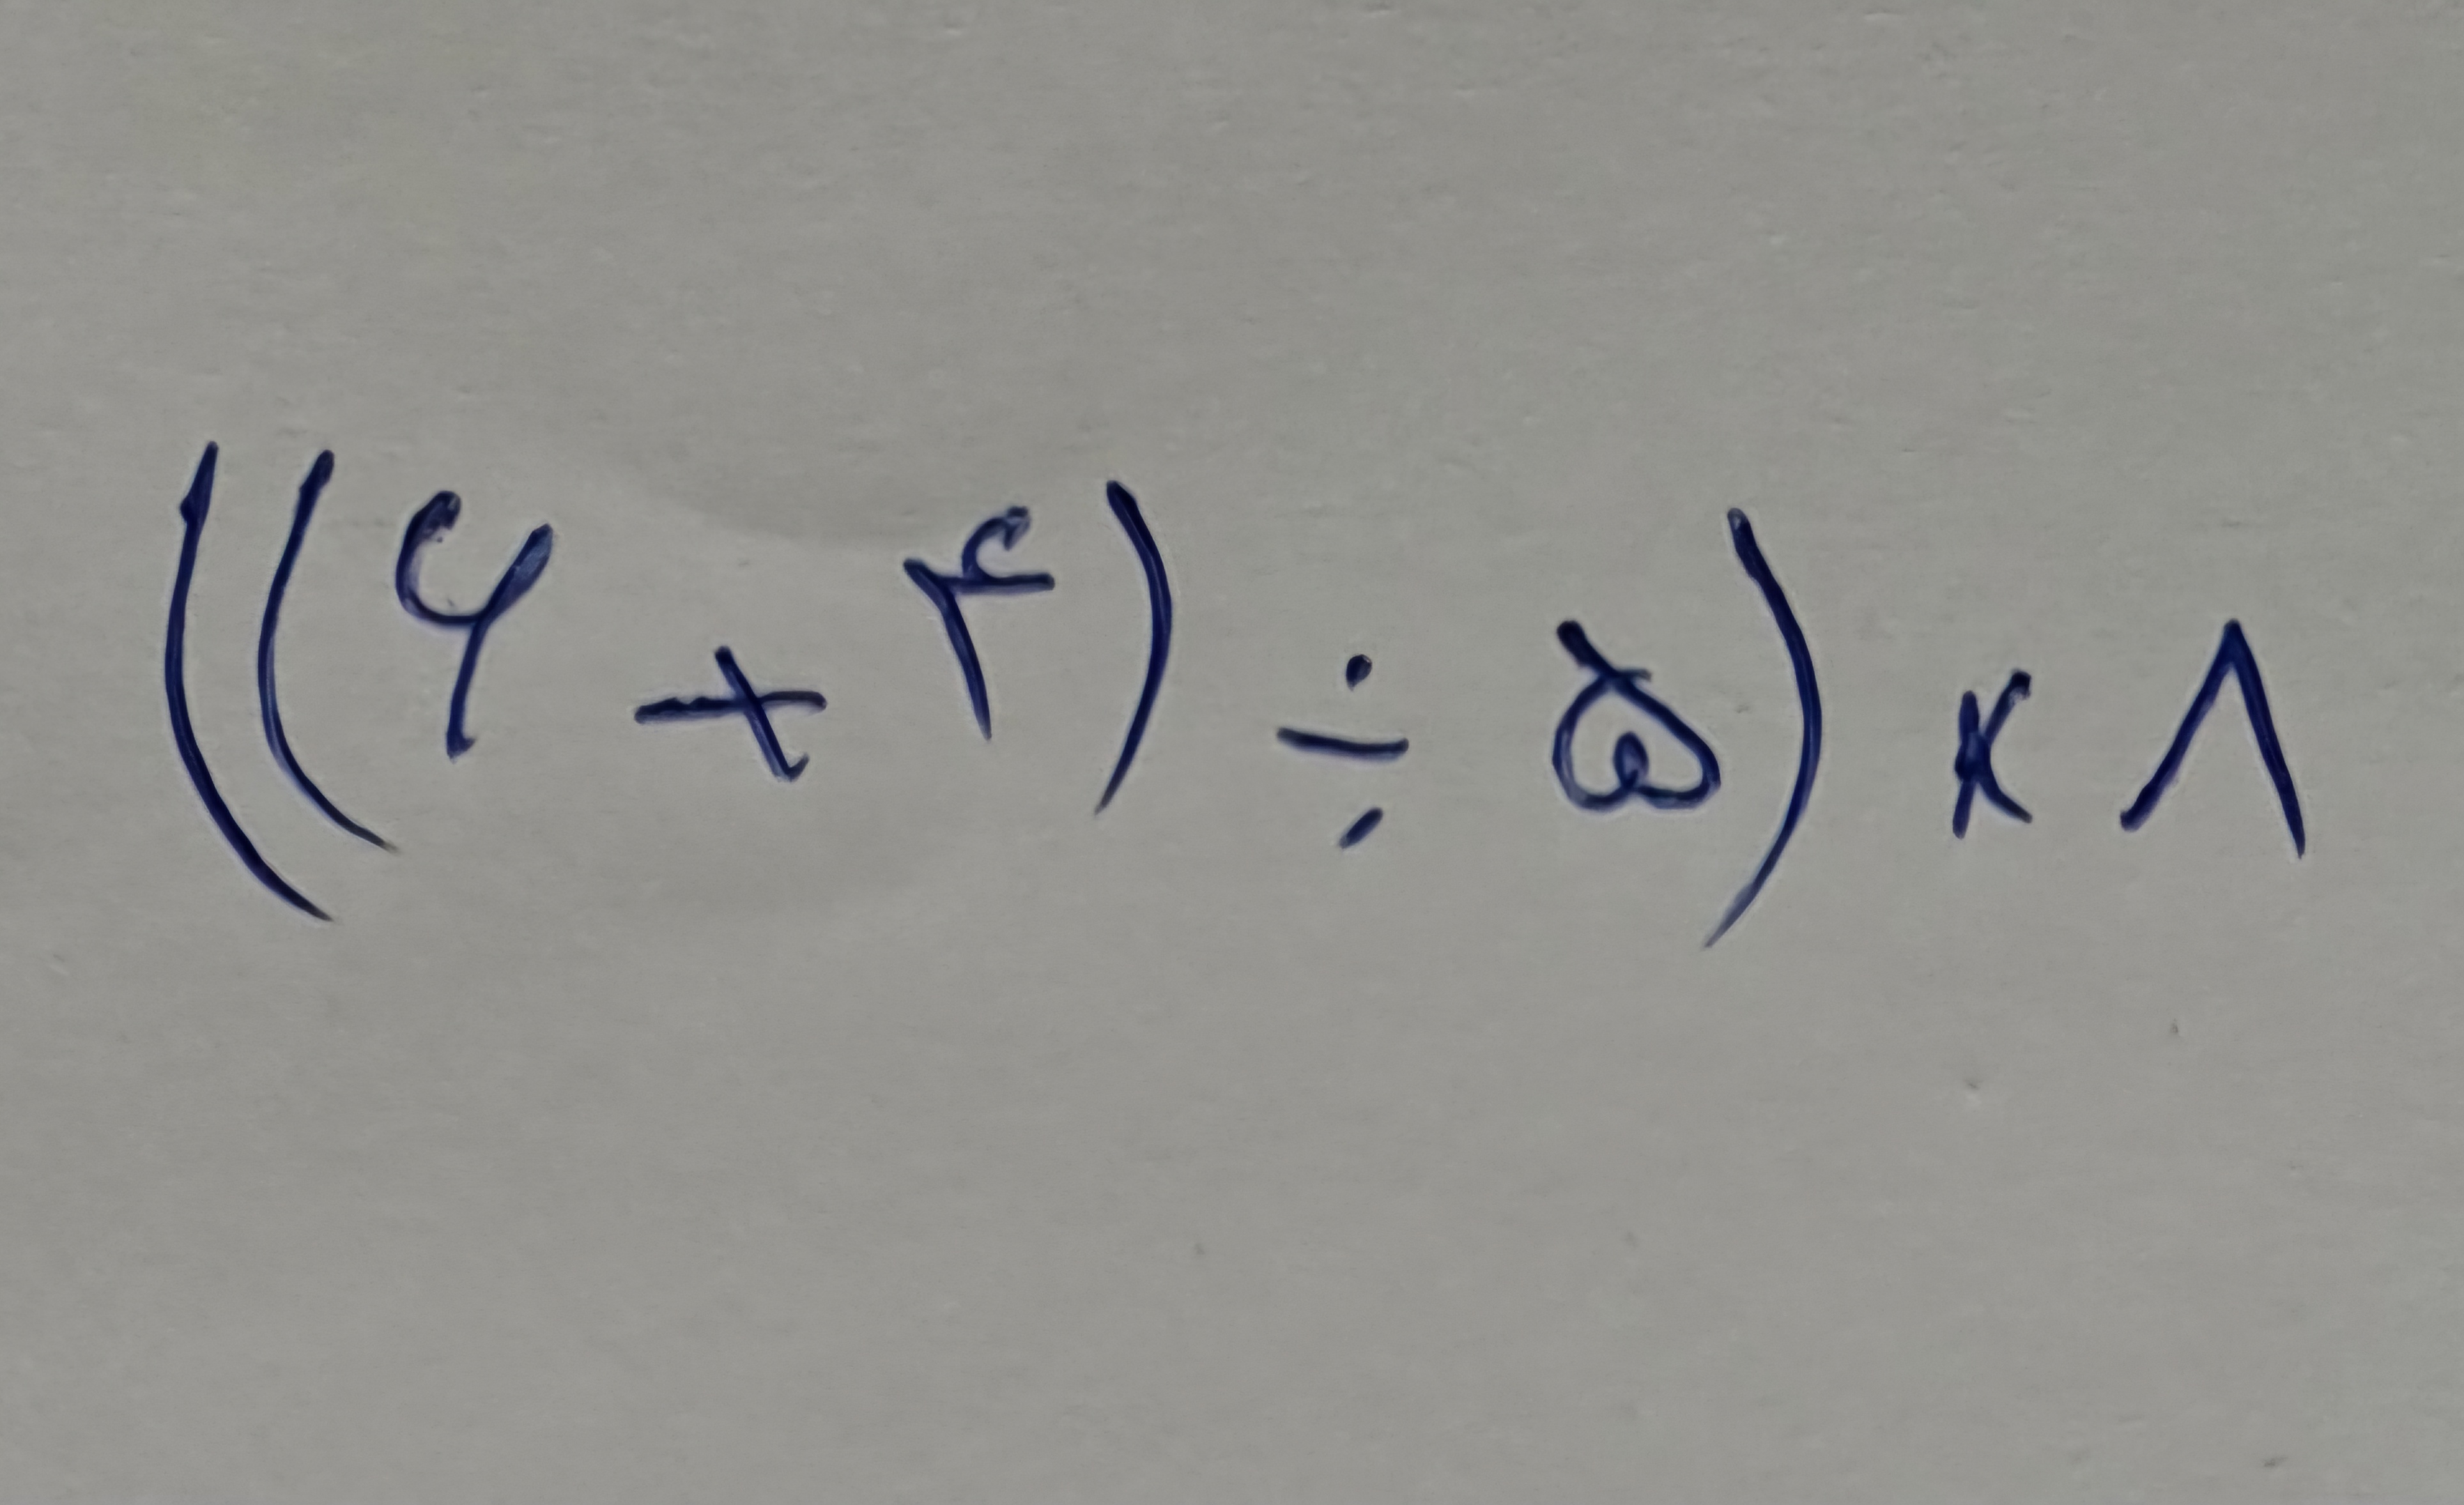 ((۶ + ۴) ÷ ۵) × ۸